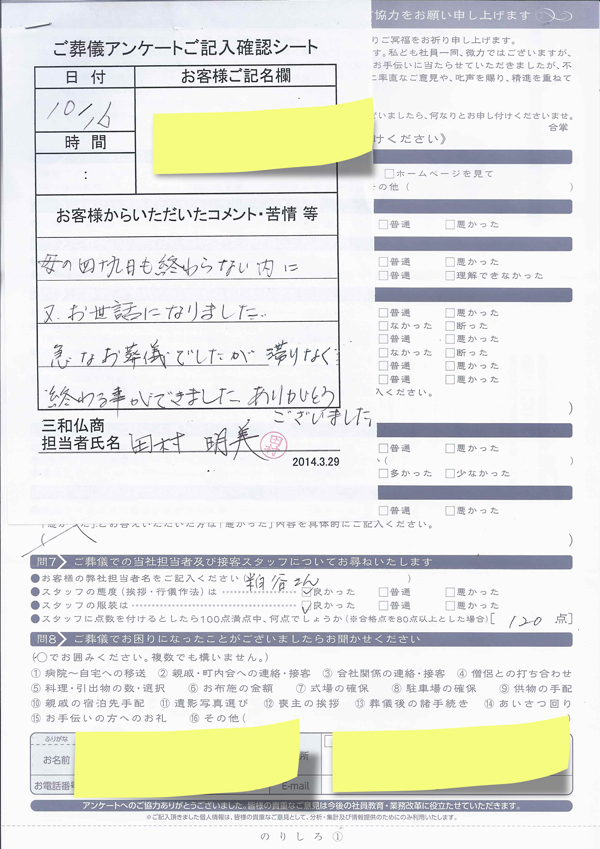 ご協力をお願い申し上げます
ご葬儀アンケートご記入確認シート
日付
お客様ご記名欄
10/16
時間
:
お客様からいただいたコメント・苦情 等
母の四十九日も終わらない内に
又、お世話になりました。
急なお葬儀でしたが滞りなく
終わる事ができました。ありがとう
ございました。
三和仏商
担当者氏名 田村 明美
田村
2014.3.29
りご冥福をお祈り申し上げます。
す。私ども社員一同、微力ではございますが、
お手伝いに当たらせていただきましたが、不
ご率直なご意見や、叱声を賜り、精進を重ねて
いましたら、何なりとお申し付けくださいませ。
合掌
けください》
□ホームページを見て
その他( )
□普通 □悪かった
□普通 □悪かった
□普通 □理解できなかった
□普通 □悪かった
□なかった □断った
□普通 □悪かった
□なかった □断った
□普通 □悪かった
□普通 □悪かった
ください。
)
□普通 □悪かった
い( )
□多かった □少なかった
□普通 □悪かった
「悪かった」とお答えいただいた方は「悪かった」内容を具体的にご記入ください。
)
問7 ご葬儀での当社担当者及び接客スタッフについてお尋ねいたします
●お客様の弊社担当者名をご記入ください( 粕谷さん )
●スタッフの態度(挨拶・行儀作法)は ☑良かった □普通 □悪かった
●スタッフの服装は ☑良かった □普通 □悪かった
●スタッフに点数を付けるとしたら100点満点中、何点でしょうか(※合格点を80点以上とした場合)[ 120 点]
問8 ご葬儀でお困りになったことがございましたらお聞かせください
(○でお囲みください。複数でも構いません。)
①病院〜自宅への移送 ②親戚・町内会への連絡・接客 ③会社関係の連絡・接客 ④僧侶との打ち合わせ
⑤料理・引出物の数・選択 ⑥お布施の金額 ⑦式場の確保 ⑧駐車場の確保 ⑨供物の手配
⑩親戚の宿泊先手配 ⑪遺影写真選び ⑫喪主の挨拶 ⑬葬儀後の諸手続き ⑭あいさつ回り
⑮お手伝いの方へのお礼 ⑯その他( )
ふりがな
お名前
所
お電話番号
E-mail
アンケートへのご協力ありがとうございました。皆様の貴重なご意見は今後の社員教育・業務改革に役立たせていただきます。
※ご記入頂きました個人情報は、皆様の貴重なご意見として、分析・集計及び情報提供のためにのみ利用いたします。
のりしろ①